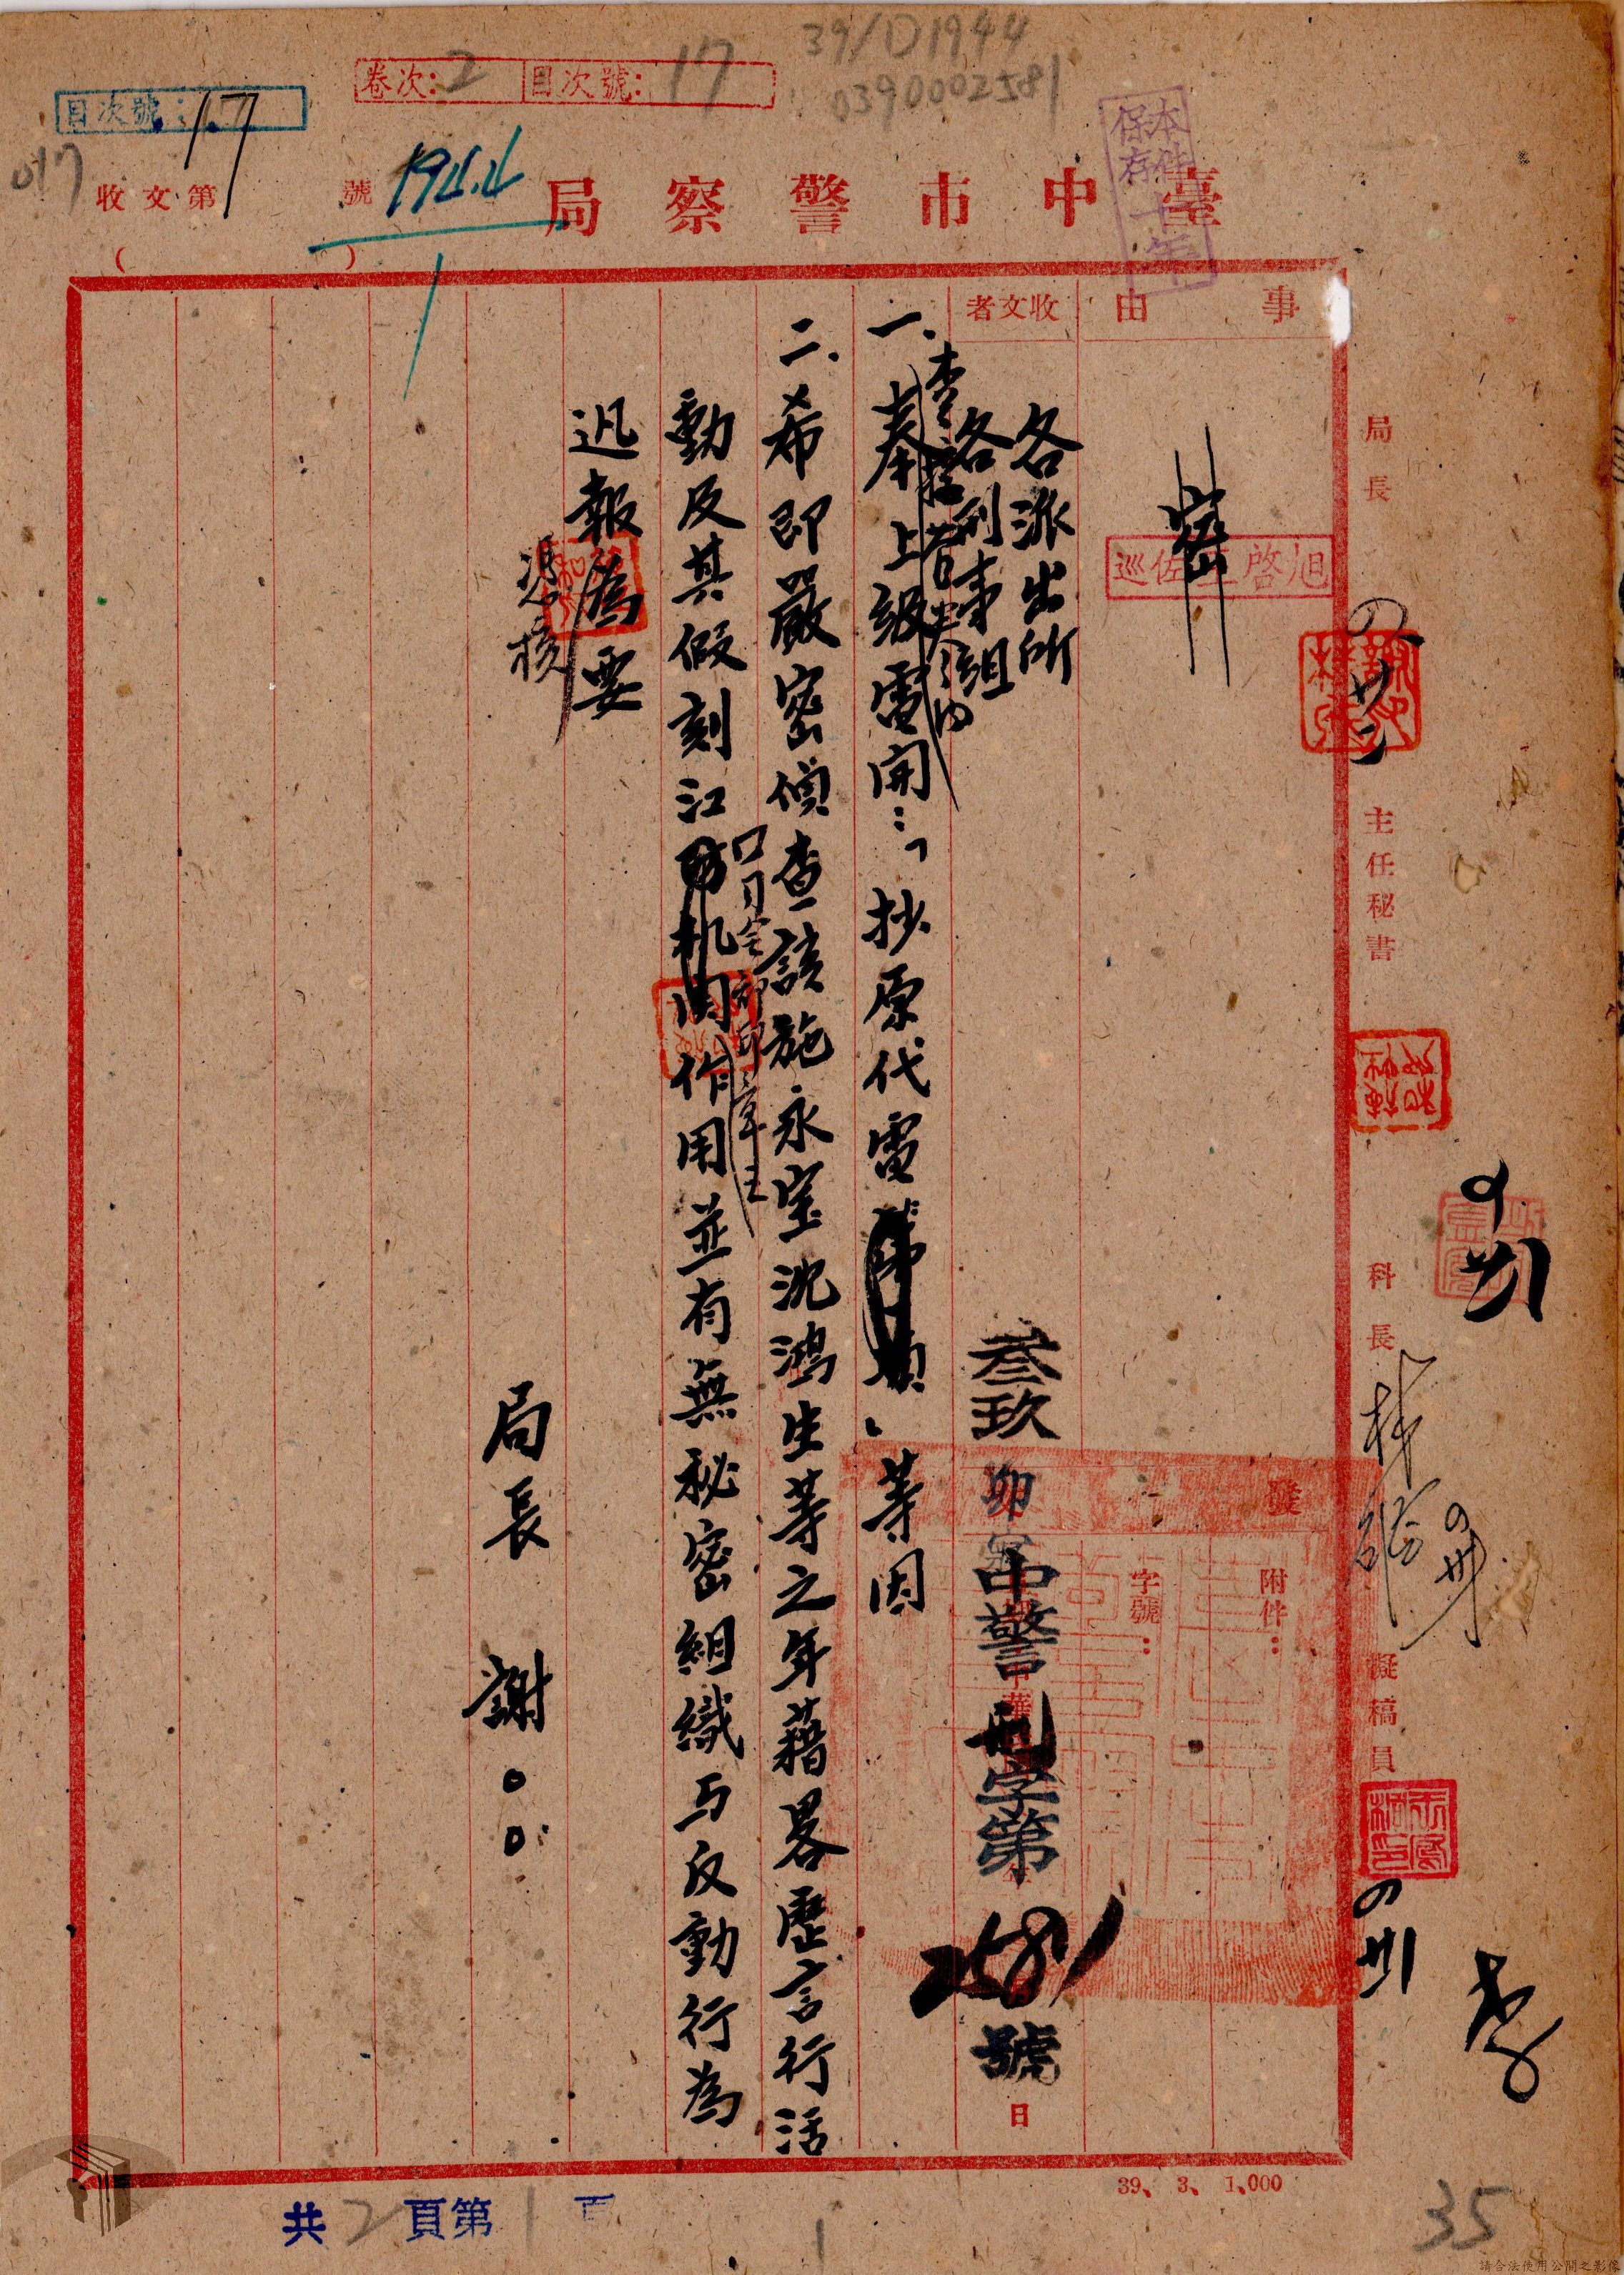 39/D1944
0390002581
卷次：2 目次號：17
目次號：17
017
本件保存十年
收文第 號
1944
臺中市警察局
事由
收文者
密
巡佐王啓旭
各派出所
各刑事組
叁玖卯
中警刑字第2581號
日
附件：
字號：
一、奉上級電開：「抄原代電」等因
二、希即嚴密偵查該施永室沈鴻生等之年藉畧歷言行活
動及其假刻江防机関作用並有無秘密組織与反動行為
口司令部印章之
迅報為要
憑核
局長 謝○○
局長
主任秘書
科長
擬稿員
39、3、1,000
共2頁第1頁
35
請合法使用公開之影像